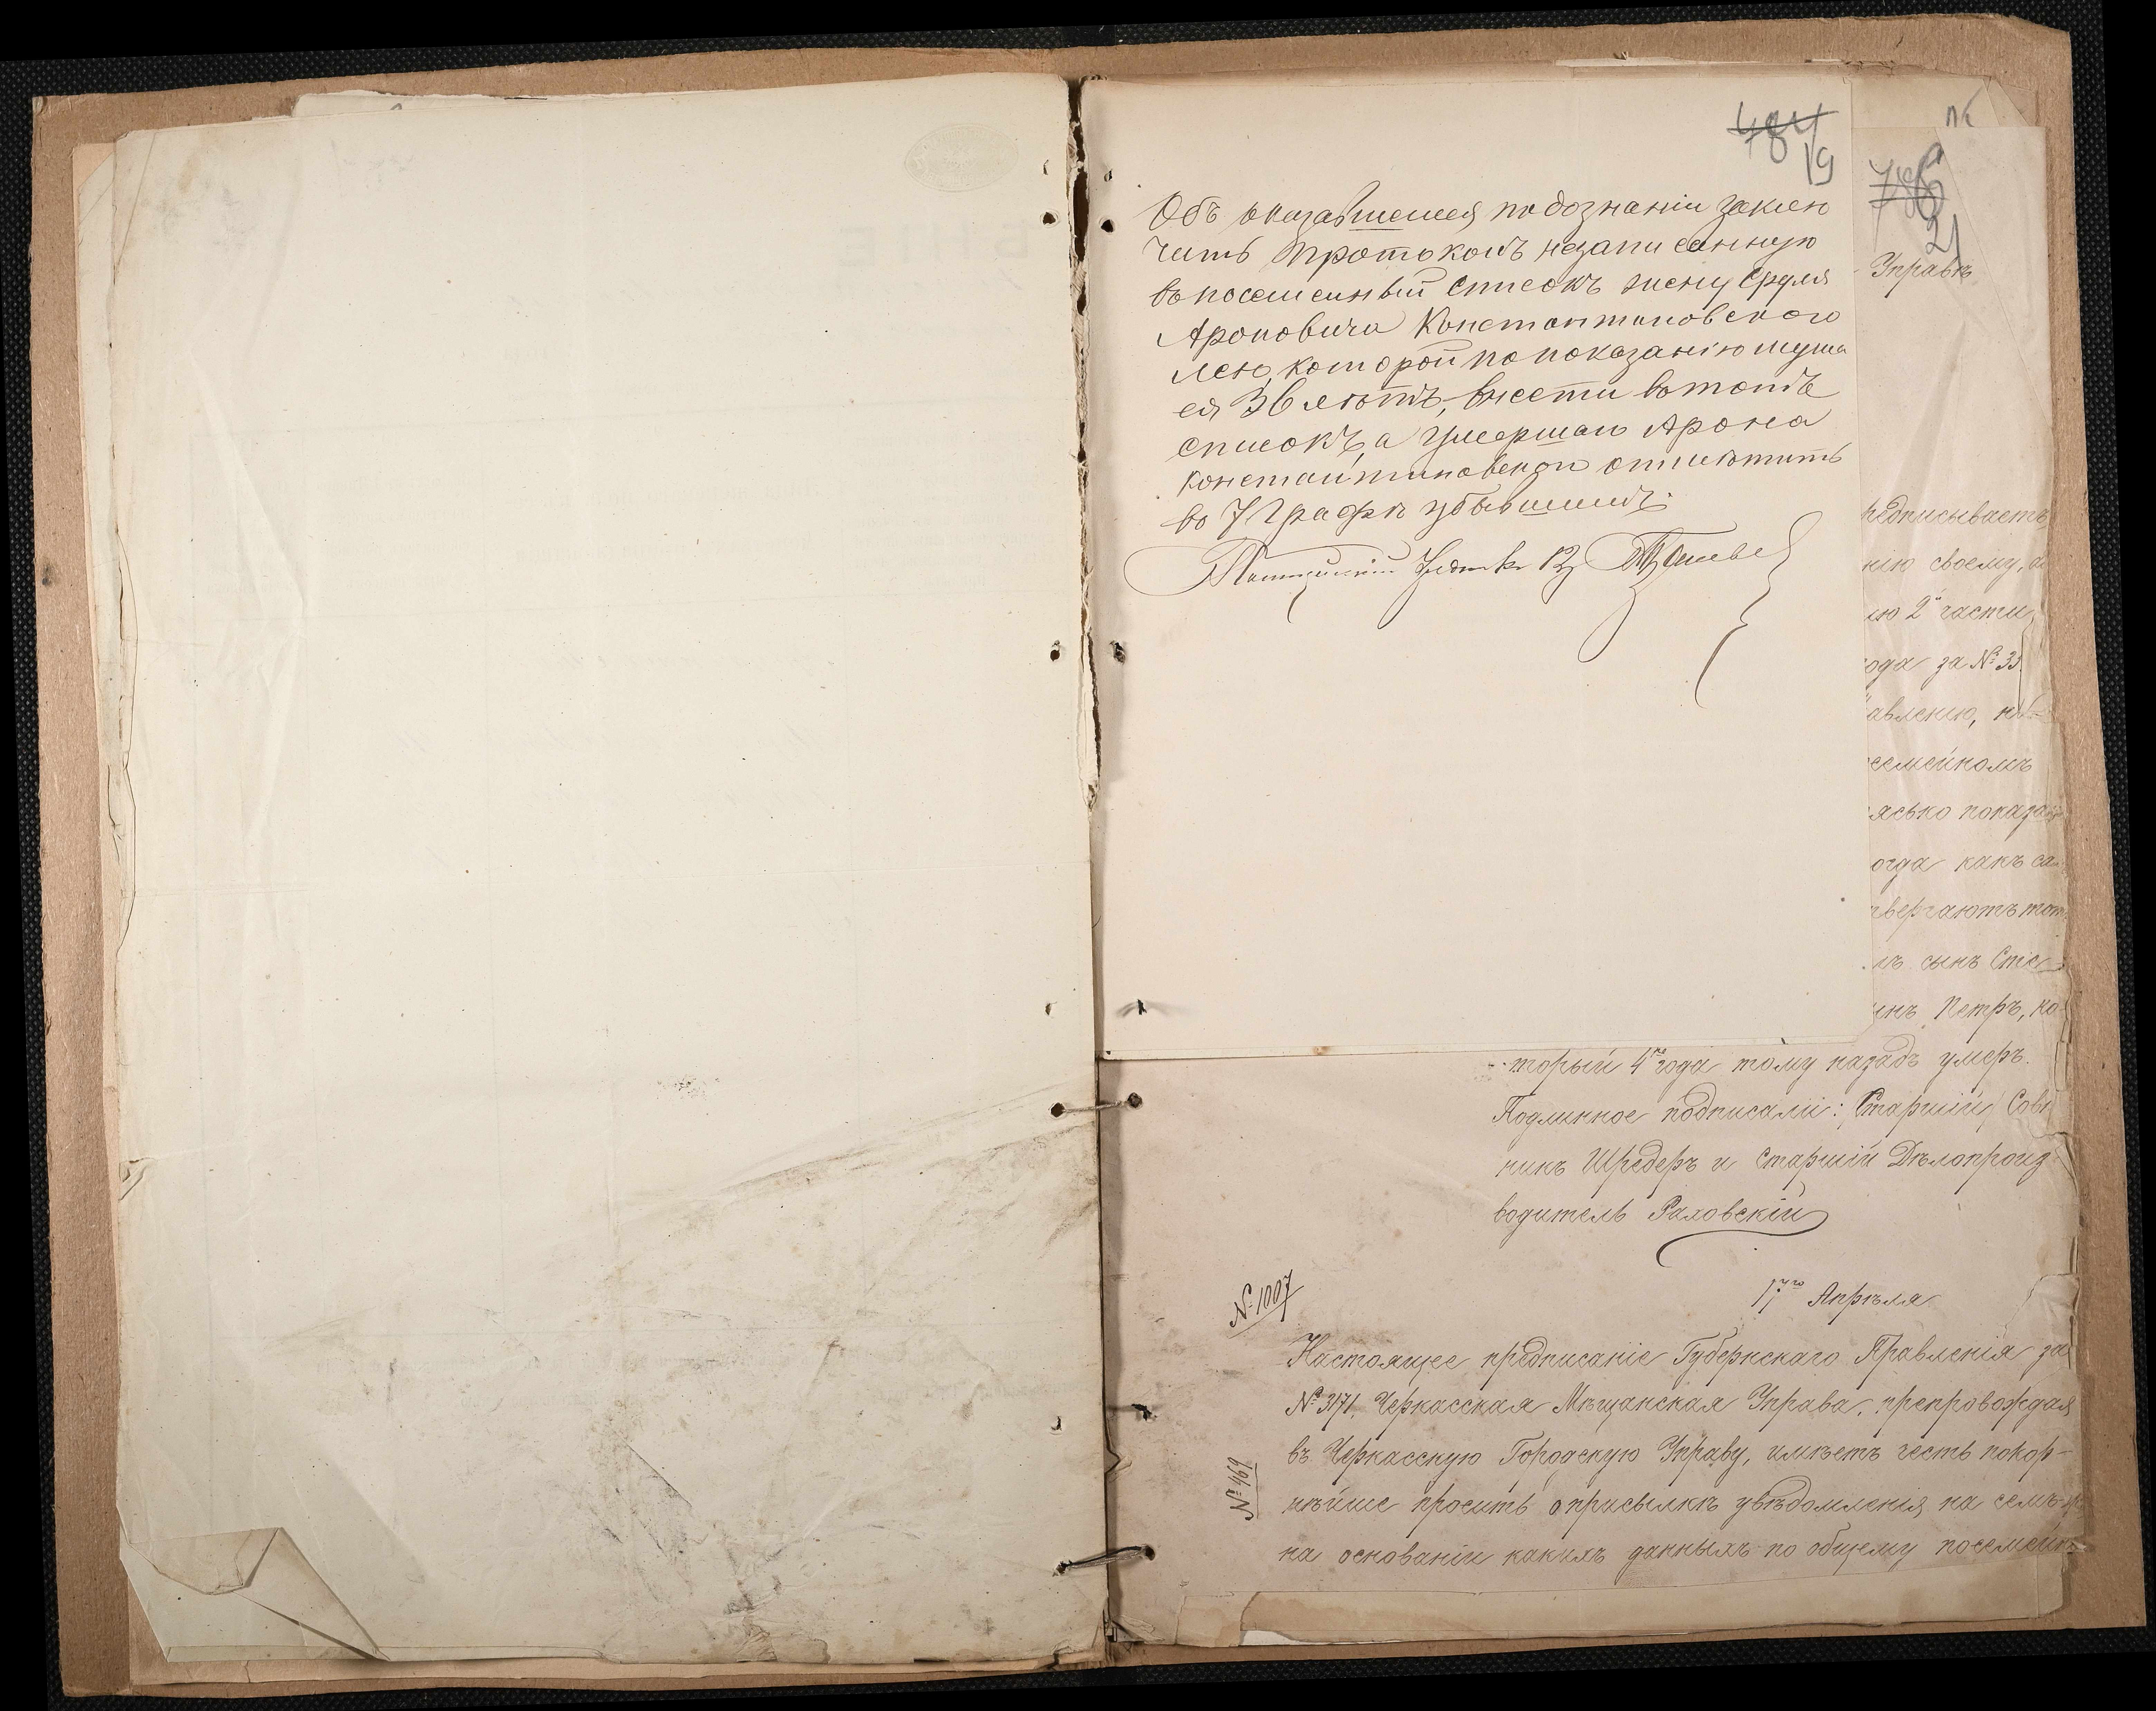 484
19
Объ оказавшемся по дознанію заклю
чить протоколъ незаписанную
въ посемейный списокъ жену Сруля
Ароновича Константиновского
Лею, которой по показанію мужа
ея 36 лѣтъ, внести въ тотъ
списокъ, а умершаго Арона
Константиновскаго отмѣтить
въ 7 графѣ убывшимъ.
21
Управѣ
редписываетъ
нію своему,
ію 2й части
года за № 33
авленію,
семейномъ
ясько показан
огда какъ са
твергаютъ
сынъ
инъ Петръ, ко-
торый 4 года тому назадъ умеръ.
Подлинное подписали: Старшій Совѣт
никъ Шредеръ и Старшій Дѣлопроиз
водитель Раховскій
№ 1007
17го Апрѣля
Настоящее предписаніе Губернскаго Правленія за
№ 3171, Черкасская Мѣщанская Управа, препровождая
въ Черкасскую Городскую Управу, имѣетъ честь покор-
№ 469
нѣйше просить о присылкѣ увѣдомленія, на семъ-же
на основаніи какихъ данныхъ по общему посемейн